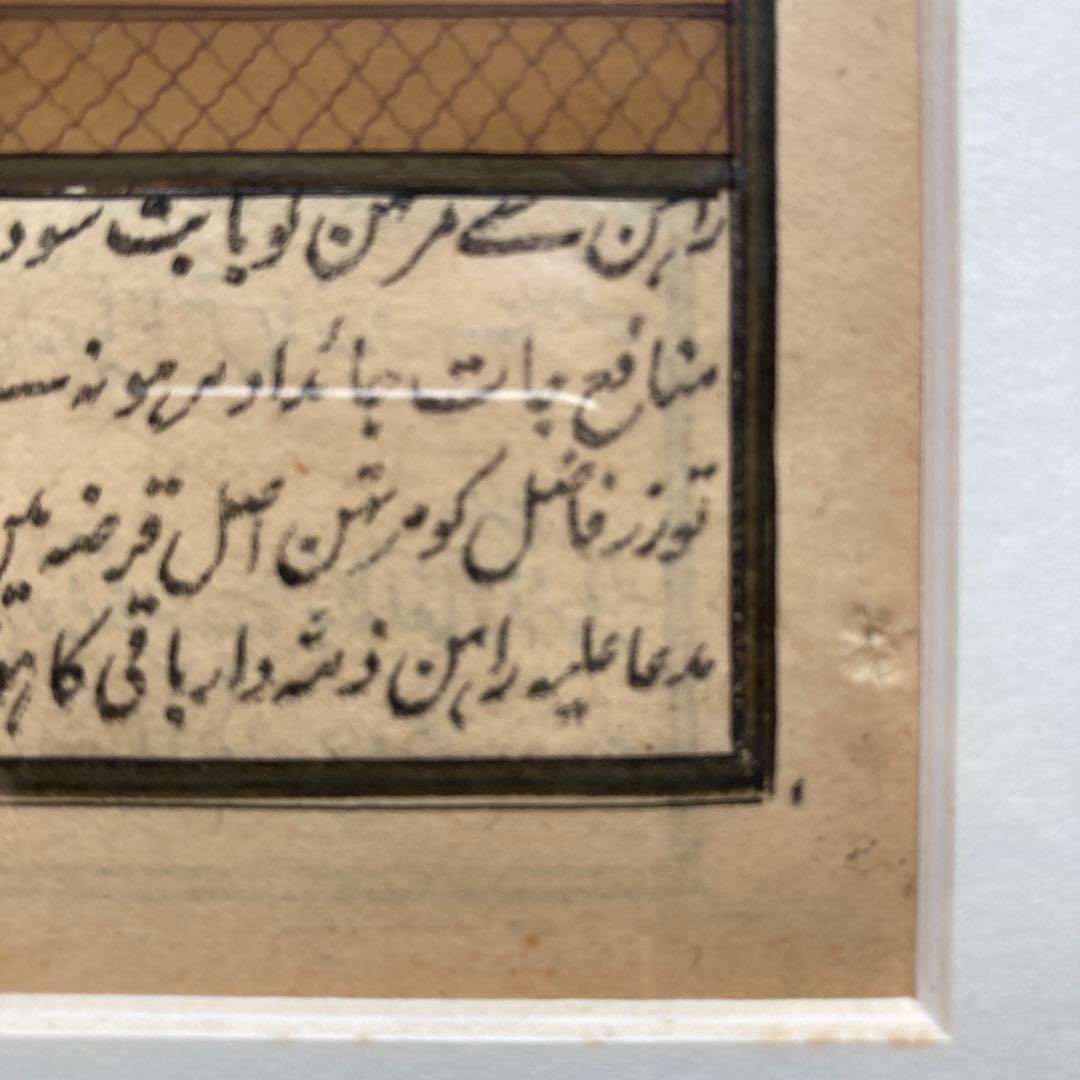 راہن سے مرتہن کو بابت سود
منافع بابت جائداد مرہونہ سے
تو زر فاضل کو مرتہن اصل قرضہ میں
مدعا علیہ راہن ذمہ دار باقی کا